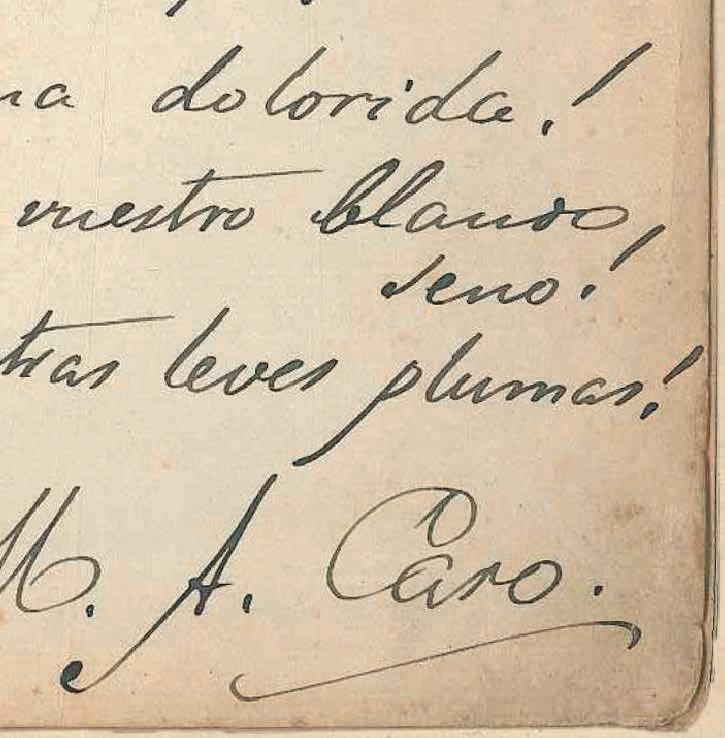 na dolorida!
vuestro blando
seno!
tras leves plumas!
M. A. Caro.